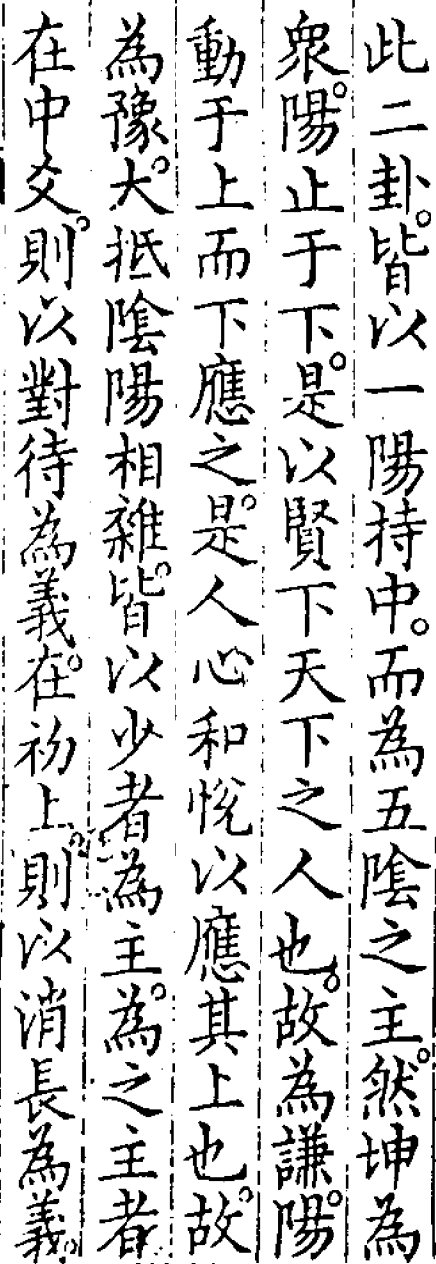 此二卦。皆以一陽持中。而為五陰之主。然坤為
衆。陽止于下。是以賢下天下之人也。故為謙。陽
動于上而下應之。是人心和悅以應其上也。故
為豫。大抵陰陽相雜。皆以少者為主。為之主者
在中爻。則以對待為義。在初上。則以消長為義。